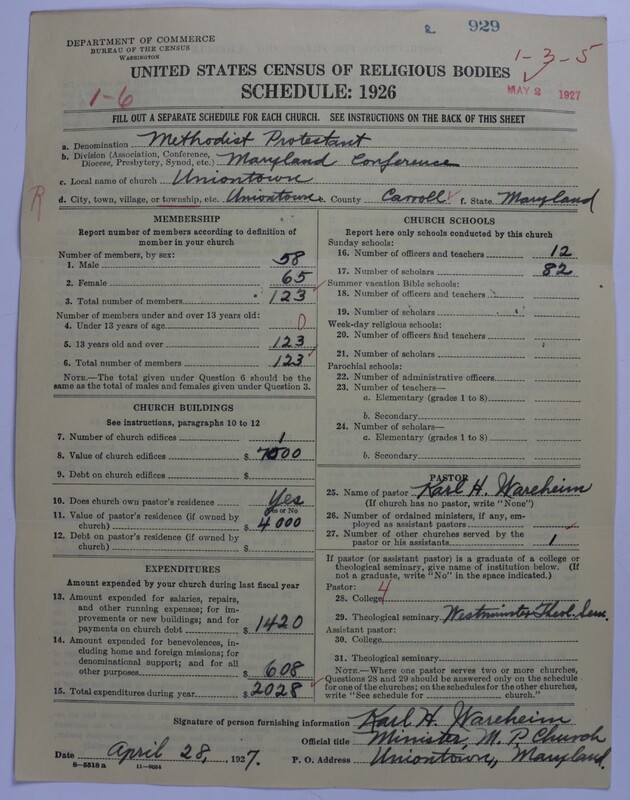 929
DEPARTMENT OF COMMERCE
BUREAU OF THE CENSUS
WASHINGTON
1-3-5
UNITED STATES CENSUS OF RELIGIOUS BODIES
MAY 2 1927
1-6
SCHEDULE: 1926
FILL OUT A SEPARATE SCHEDULE FOR EACH CHURCH. SEE INSTRUCTIONS ON THE BACK OF THIS SHEET
a. Denomination Methodist Protestant
b. Division (Association, Conference, Diocese, Presbytery, Synod, etc.) Maryland Conference
c. Local name of church Uniontown
R
d. City, town, village, or township, etc. Uniontown e. County Carroll f. State Maryland
MEMBERSHIP
Report number of members according to definition of
member in your church
Number of members, by sex:
1. Male 58
2. Female 65
3. Total number of members 123
Number of members under and over 13 years old:
4. Under 13 years of age 0
5. 13 years old and over 123
6. Total number of members 123
NOTE.—The total given under Question 6 should be
the same as the total of males and females given under Question 3.
CHURCH BUILDINGS
See instructions, paragraphs 10 to 12
7. Number of church edifices 1
8. Value of church edifices $ 7500
9. Debt on church edifices $
10. Does church own pastor's residence Yes
Yes or No
11. Value of pastor's residence (if owned by
church) $ 4000
12. Debt on pastor's residence (if owned by
church) $
EXPENDITURES
Amount expended by your church during last fiscal year
13. Amount expended for salaries, repairs,
and other running expenses; for im-
provements or new buildings; and for
payments on church debt $ 1420
14. Amount expended for benevolences, in-
cluding home and foreign missions; for
denominational support; and for all
other purposes $ 608
15. Total expenditures during year $ 2028
CHURCH SCHOOLS
Report here only schools conducted by this church
Sunday schools:
16. Number of officers and teachers 12
17. Number of scholars 82
Summer vacation Bible schools:
18. Number of officers and teachers
19. Number of scholars
Week-day religious schools:
20. Number of officers and teachers
21. Number of scholars
Parochial schools:
22. Number of administrative officers
23. Number of teachers—
a. Elementary (grades 1 to 8)
b. Secondary
24. Number of scholars—
a. Elementary (grades 1 to 8)
b. Secondary
PASTOR
25. Name of pastor Karl H. Wareheim
(If church has no pastor, write "None")
26. Number of ordained ministers, if any, em-
ployed as assistant pastors
27. Number of other churches served by the
pastor or his assistants 1
If pastor (or assistant pastor) is a graduate of a college or
theological seminary, give name of institution below. (If
not a graduate, write "No" in the space indicated.)
Pastor:
28. College 4
29. Theological seminary Westminster Theol. Sem.
Assistant pastor:
30. College
31. Theological seminary
NOTE.—Where one pastor serves two or more churches,
Questions 28 and 29 should be answered only on the schedule
for one of the churches; on the schedules for the other churches,
write "See schedule for church."
Signature of person furnishing information Karl H. Wareheim
Official title Minister, M. P. Church
Date April 28, 1927. P. O. Address Uniontown, Maryland.
8-5518 a 11-9264